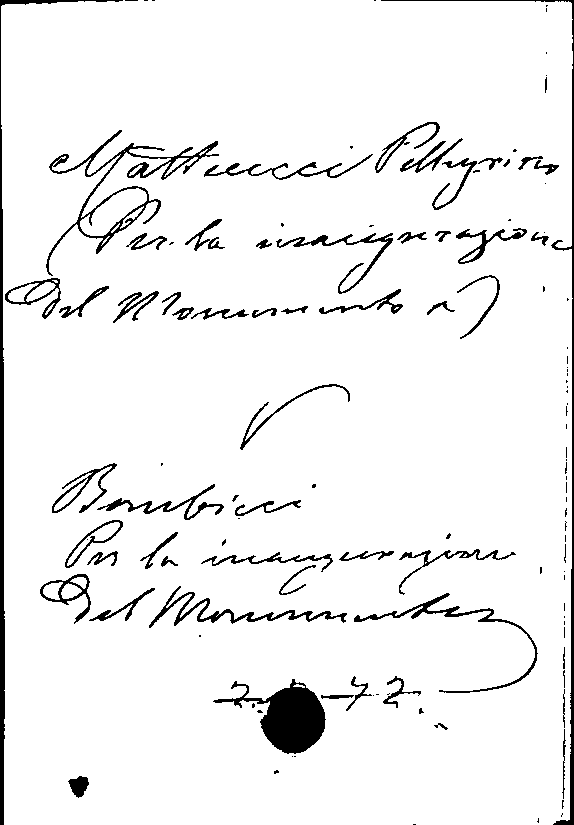 Matteucci Pellegrino
(Per la inaugurazione
del Monumento a)
Bombicci
Per la inaugurazione
del Monumento